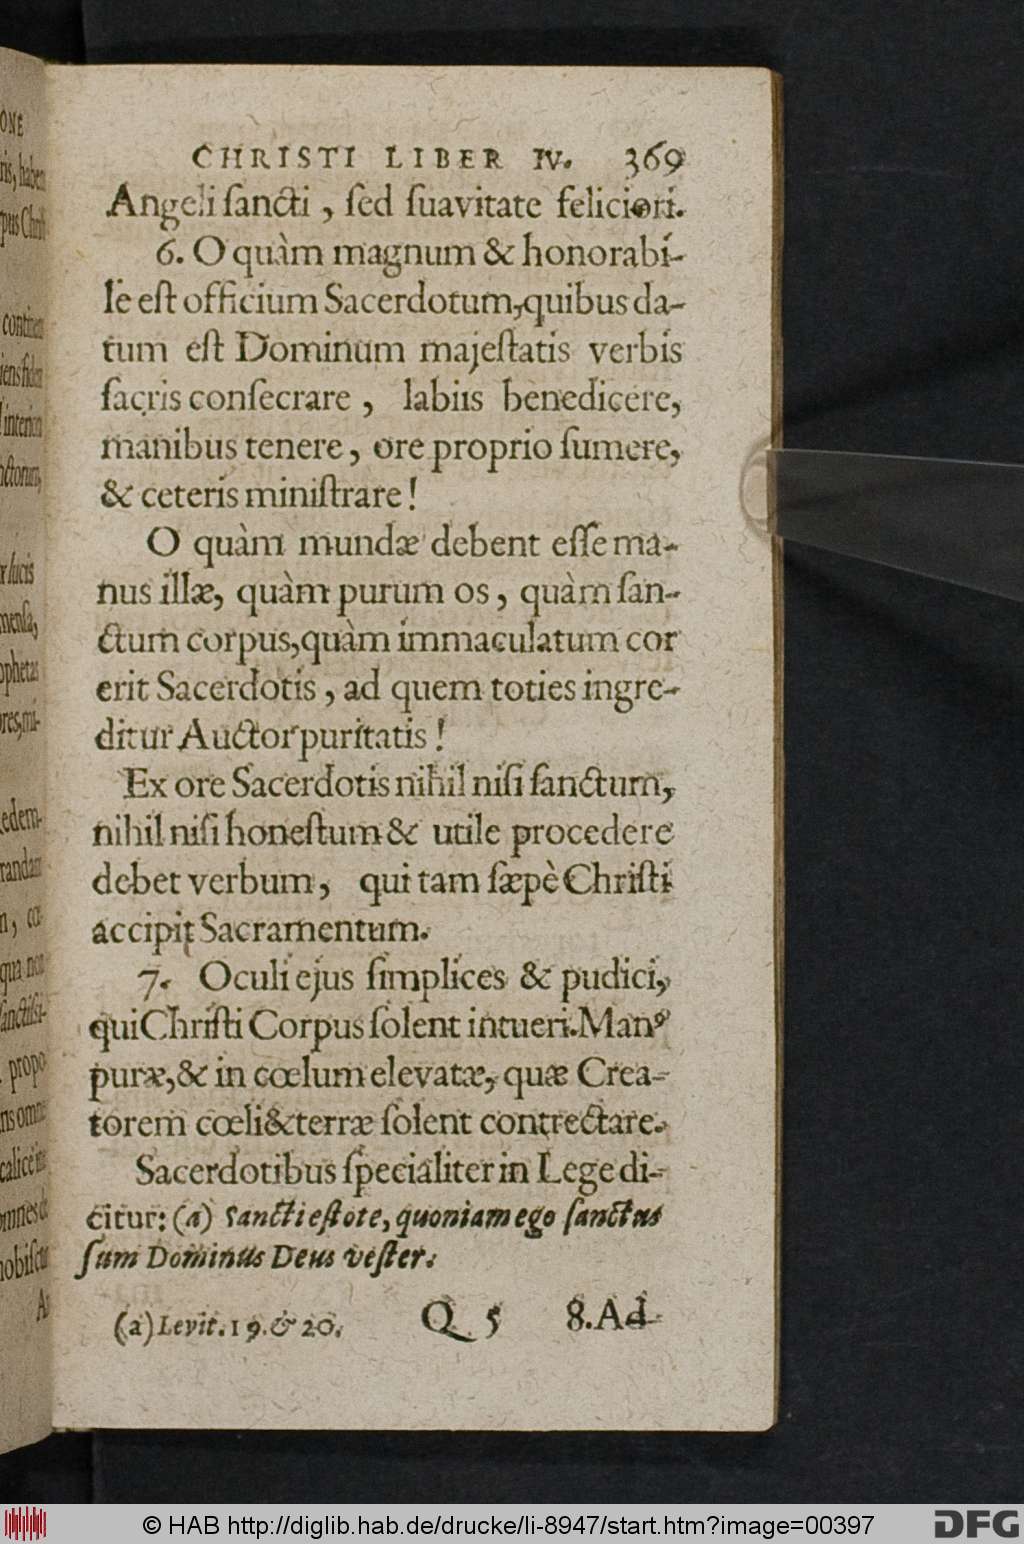 CHRISTI LIBER IV. 369
Angeli ſancti, ſed ſuavitate feliciori.
6. O quàm magnum & honorabi-
le eſt officium Sacerdotum, quibus da-
tum eſt Dominum majeſtatis verbis
ſacris conſecrare, labiis benedicere,
manibus tenere, ore proprio ſumere,
& ceteris miniſtrare!
O quàm mundæ debent eſſe ma-
nus illæ, quàm purum os, quàm ſan-
ctum corpus, quàm immaculatum cor
erit Sacerdotis, ad quem toties ingre-
ditur Auctor puritatis!
Ex ore Sacerdotis nihil niſi ſanctum,
nihil niſi honeſtum & utile procedere
debet verbum, qui tam ſæpè Chriſti
accipit Sacramentum.
7. Oculi ejus ſimplices & pudici,
qui Chriſti Corpus ſolent intueri. Manꝰ
puræ, & in cœlum elevatæ, quæ Crea-
torem cœli & terræ ſolent contrectare.
Sacerdotibus ſpecialiter in Lege di-
citur: (a) Sancti eſtote, quoniam ego ſanctus
ſum Dominus Deus veſter.
(a) Levit. 19. & 20. Q 5 8. Ad
© HAB http://diglib.hab.de/drucke/li-8947/start.htm?image=00397
DFG